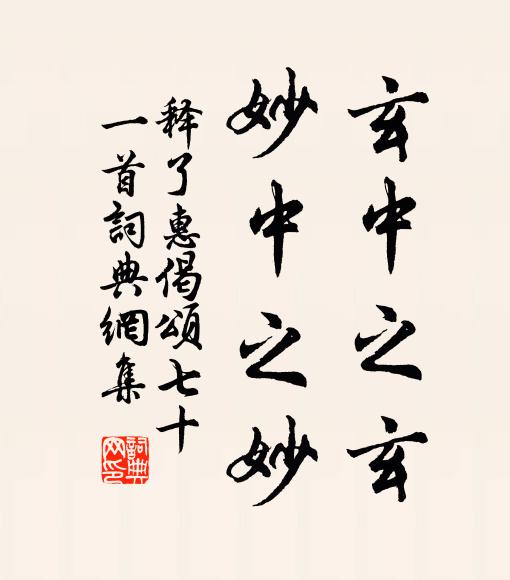 玄中之玄
妙中之妙
释了惠偈頌七十
一首詞典網集
詞典
网印